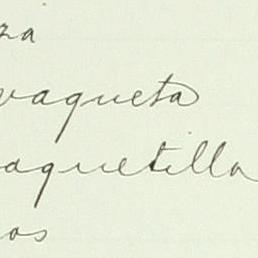 za
vaqueta
aquetilla
os